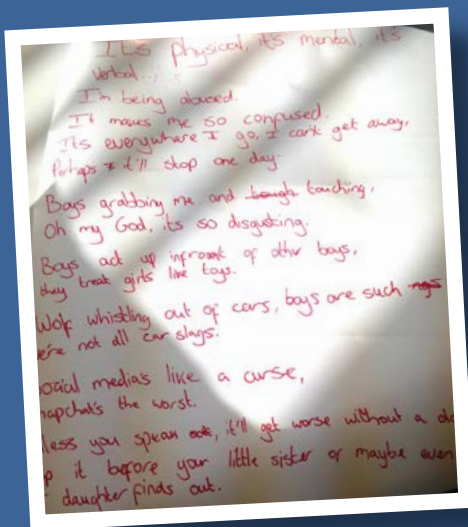 Its physical, it's mental, it's
verbal...
I'm being abused.
It makes me so confused.
Its everywhere I go, I can't get away,
Perhaps it'll stop one day.
Boys grabbing me and touching,
Oh my God, its so disgusting.
Boys act up infront of other boys,
they treat girls like toys.
Wolf whistling out of cars, boys are such
we're not all car slags.
social media's like a curse,
snapchat's the worst.
less you speak, it'll get worse without a
it before your little sister or maybe even
daughter finds out.